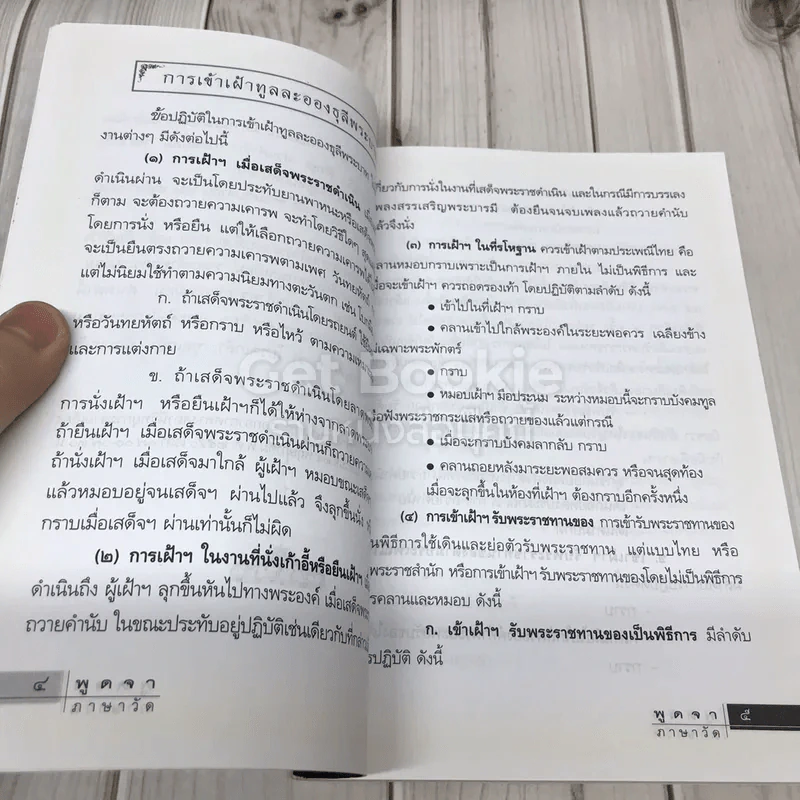 การเข้าเฝ้าทูลละอองธุลีพระบาท
ข้อปฏิบัติในการเข้าเฝ้าทูลละอองธุลีพระบาท
งานต่างๆ มีดังต่อไปนี้
(๑) การเฝ้าฯ เมื่อเสด็จพระราชดำเนิน
ดำเนินผ่าน จะเป็นโดยประทับยานพาหนะหรือเสด็จ
ก็ตาม จะต้องถวายความเคารพ จะทำโดยวิธีใดๆ
โดยการนั่ง หรือยืน แต่ให้เลือกถวายความเคารพ
จะเป็นยืนตรงถวายความเคารพตามเพศ วันทยหัตถ์
แต่ไม่นิยมใช้ทำตามความนิยมทางตะวันตก เช่น
ก. ถ้าเสด็จพระราชดำเนินโดยรถยนต์
หรือวันทยหัตถ์ หรือกราบ หรือไหว้ ตามความ
และการแต่งกาย
ข. ถ้าเสด็จพระราชดำเนินโดย
การนั่งเฝ้าฯ หรือยืนเฝ้าฯก็ได้ให้ห่างจาก
ถ้ายืนเฝ้าฯ เมื่อเสด็จพระราชดำเนินผ่านก็ถวายความ
ถ้านั่งเฝ้าฯ เมื่อเสด็จมาใกล้ ผู้เฝ้าฯ หมอบขณะเสด็จ
แล้วหมอบอยู่จนเสด็จฯ ผ่านไปแล้ว จึงลุกขึ้นนั่ง
กราบเมื่อเสด็จฯ ผ่านเท่านั้นก็ไม่ผิด
(๒) การเฝ้าฯ ในงานที่นั่งเก้าอี้หรือยืนเฝ้าฯ
ดำเนินถึง ผู้เฝ้าฯ ลุกขึ้นหันไปทางพระองค์ เมื่อเสด็จ
ถวายคำนับ ในขณะประทับอยู่ปฏิบัติเช่นเดียวกับที่กล่าว
๔ พูดจา
ภาษาวัด
กี่ยวกับการนั่งในงานที่เสด็จพระราชดำเนิน และในกรณีมีการบรรเลง
พลงสรรเสริญพระบารมี ต้องยืนจนจบเพลงแล้วถวายคำนับ
ล้วจึงนั่ง
(๓) การเฝ้าฯ ในที่รโหฐาน ควรเข้าเฝ้าตามประเพณีไทย คือ
คลานหมอบกราบเพราะเป็นการเฝ้าฯ ภายใน ไม่เป็นพิธีการ และ
มื่อจะเข้าเฝ้าฯ ควรถอดรองเท้า โดยปฏิบัติตามลำดับ ดังนี้
● เข้าไปในที่เฝ้าฯ กราบ
● คลานเข้าไปใกล้พระองค์ในระยะพอควร เฉลียงข้าง
ม่เฉพาะพระพักตร์
● กราบ
● หมอบเฝ้าฯ มือประนม ระหว่างหมอบนี้จะกราบบังคมทูล
รือฟังพระราชกระแสหรือถวายของแล้วแต่กรณี
● เมื่อจะกราบบังคมลากลับ กราบ
● คลานถอยหลังมาระยะพอสมควร หรือจนสุดท้อง
เมื่อจะลุกขึ้นในห้องที่เฝ้าฯ ต้องกราบอีกครั้งหนึ่ง
(๔) การเข้าเฝ้าฯ รับพระราชทานของ การเข้ารับพระราชทานของ
นพิธีการใช้เดินและย่อตัวรับพระราชทาน แต่แบบไทย หรือ
พระราชสำนัก หรือการเข้าเฝ้าฯ รับพระราชทานของโดยไม่เป็นพิธีการ
รคลานและหมอบ ดังนี้
ก. เข้าเฝ้าฯ รับพระราชทานของเป็นพิธีการ มีลำดับ
รปฏิบัติ ดังนี้
พูดจา ๕
ภาษาวัด
Get Bookie